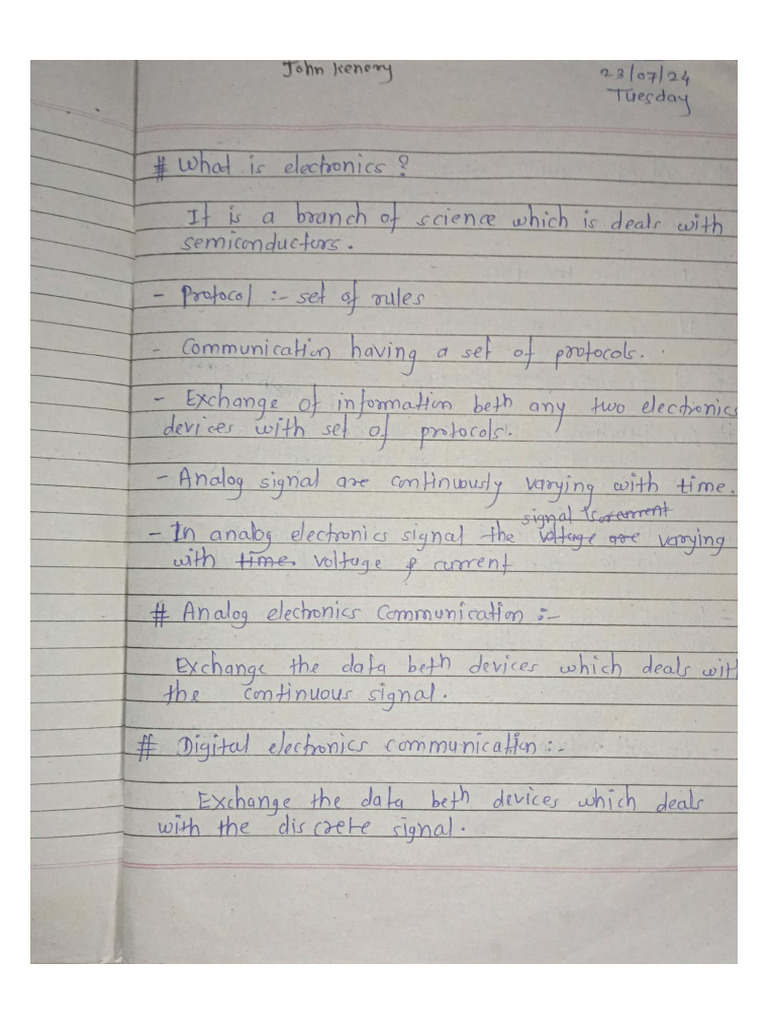 John Kenery
23/07/24
Tuesday
# What is electronics?
It is a branch of science which is deals with
semiconductors.
- Protocol :- set of rules
- Communication having a set of protocols.
- Exchange of information beth any two electronics
devices with set of protocols.
- Analog signal are continuously varying with time.
signal is current
- In analog electronics signal the voltage are varying
with time voltage & current
# Analog electronics Communication :-
Exchange the data beth devices which deals with
the continuous signal.
# Digital electronics communication :-
Exchange the data beth devices which deals
with the discrete signal.